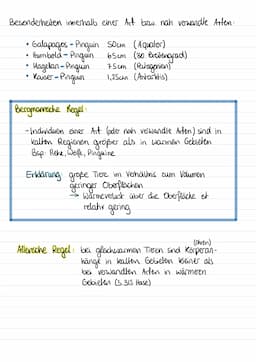 Besonderheiten innerhalb einer Art bzw. nah verwandte Arten:
• Galapagos - Pinguin 50cm (Äquator)
• Humboldt - Pinguin 65cm
• Magellan - Pinguin 75cm (Patagonien)
• Kaiser - Pinguin 1,25cm (Antarktis)
Bergmannsche Regel:
- Individuen einer Art (oder nah verwandte Arten) sind in
kalten Regionen größer als in warmen Gebieten
Bsp: Rehe, Wölfe, Pinguine
Erklärung: große Tiere im Verhältnis zum Volumen
geringer Oberflächen
→ Wärmeverlust über die Oberfläche ist
relativ gering
(Ohren)
Allensche Regel: bei gleichwarmen Tieren sind Körperan-
hänge in kalten Gebieten kleiner als
bei verwandten Arten in wärmeren
Gebieten (S.313 Hase)